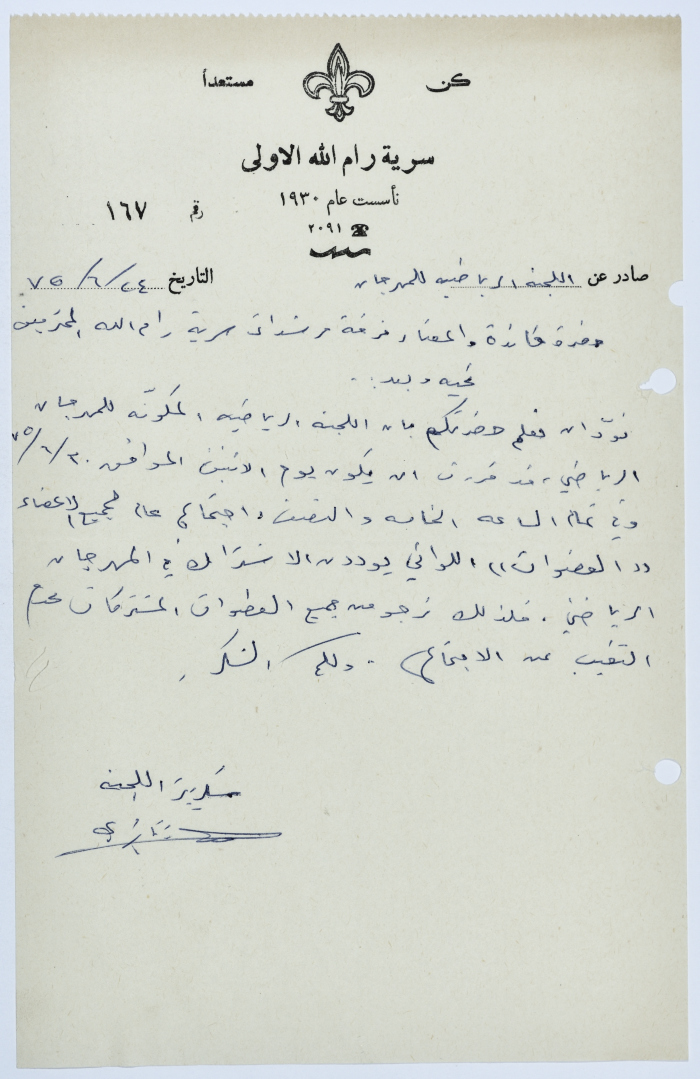 كن مستعداً
سرية رام الله الاولى
تأسست عام ١٩٣٠
رقم ١٦٧
☎ ٢٠٩١
صادر عن اللجنه الرياضيه للمهرجان التاريخ ٢٤/٦/٧٥
حضرة قائدة واعضاء فرقة مرشدات سرية رام الله المحترمين
تحيه وبعد..
نودّ ان نعلم حضرتكم بان اللجنه الرياضيه المكونّه للمهرجان
الرياضي، قد قررت ان يكون يوم الاثنين الموافق ٣٠/٦/٧٥
وفي تمام الساعه الخامسه والنصف، اجتماع عام لجميع الاعضاء
"العضوات" اللواتي يوددن الاشتراك في المهرجان
الرياضي. فلذلك نرجو من جميع العضوات المشتركات عدم
التغيب عن الاجتماع. ولكم الشكر.
سكرتير اللجنه